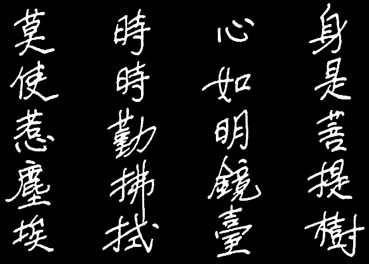 身是菩提樹
心如明鏡臺
時時勤拂拭
莫使惹塵埃